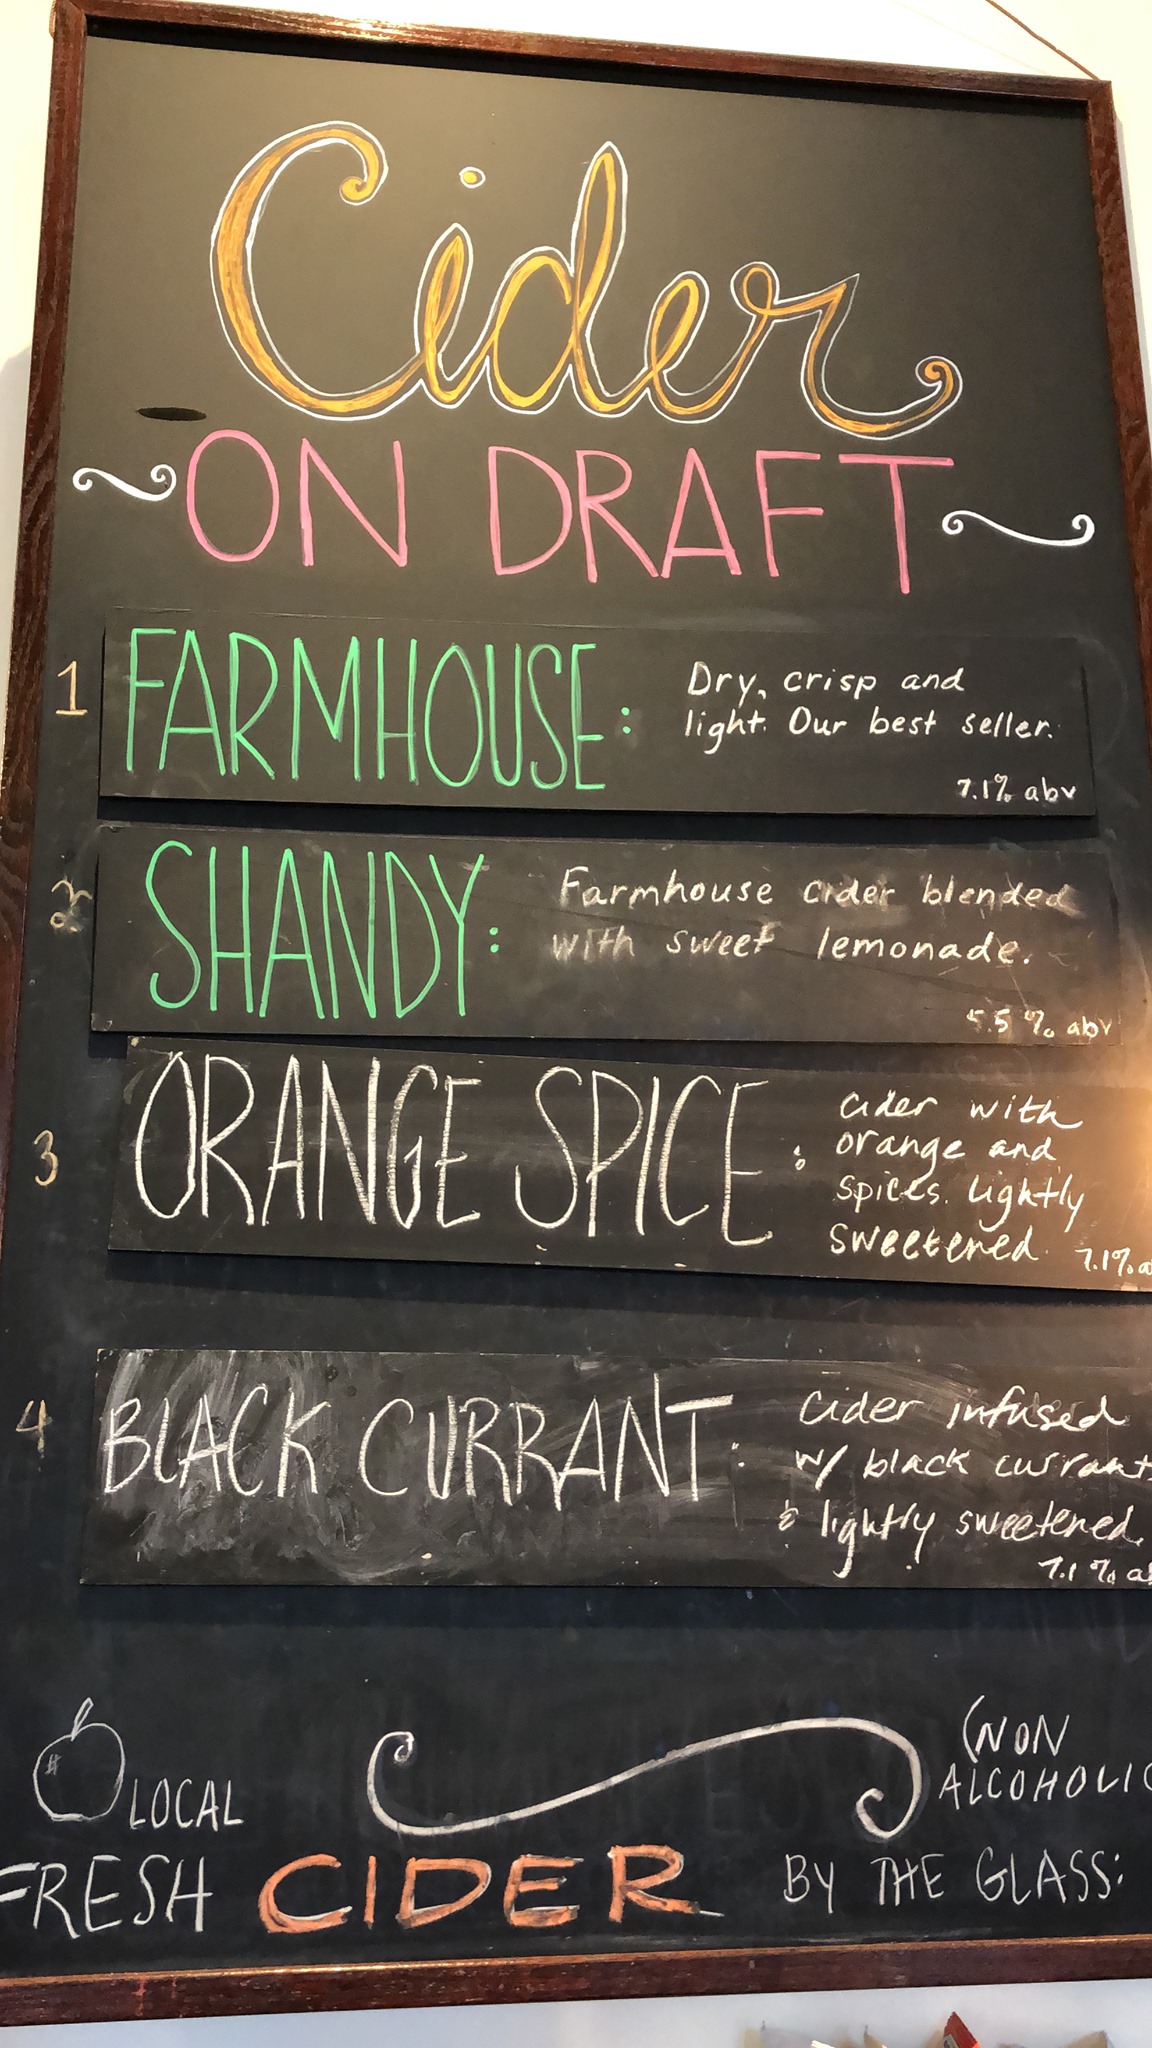 Cider
ON DRAFT
1 FARMHOUSE: Dry, crisp and
light. Our best seller.
7.1% abv
2 SHANDY: Farmhouse cider blended
with sweet lemonade.
5.5 % abv
3 ORANGE SPICE: cider with
orange and
spices. Lightly
sweetened.
7.1% a
4 BLACK CURRANT: Cider infused
w/ black currant
& lightly sweetened.
7.1 % a
LOCAL
(NON
ALCOHOLIC
FRESH CIDER BY THE GLASS: